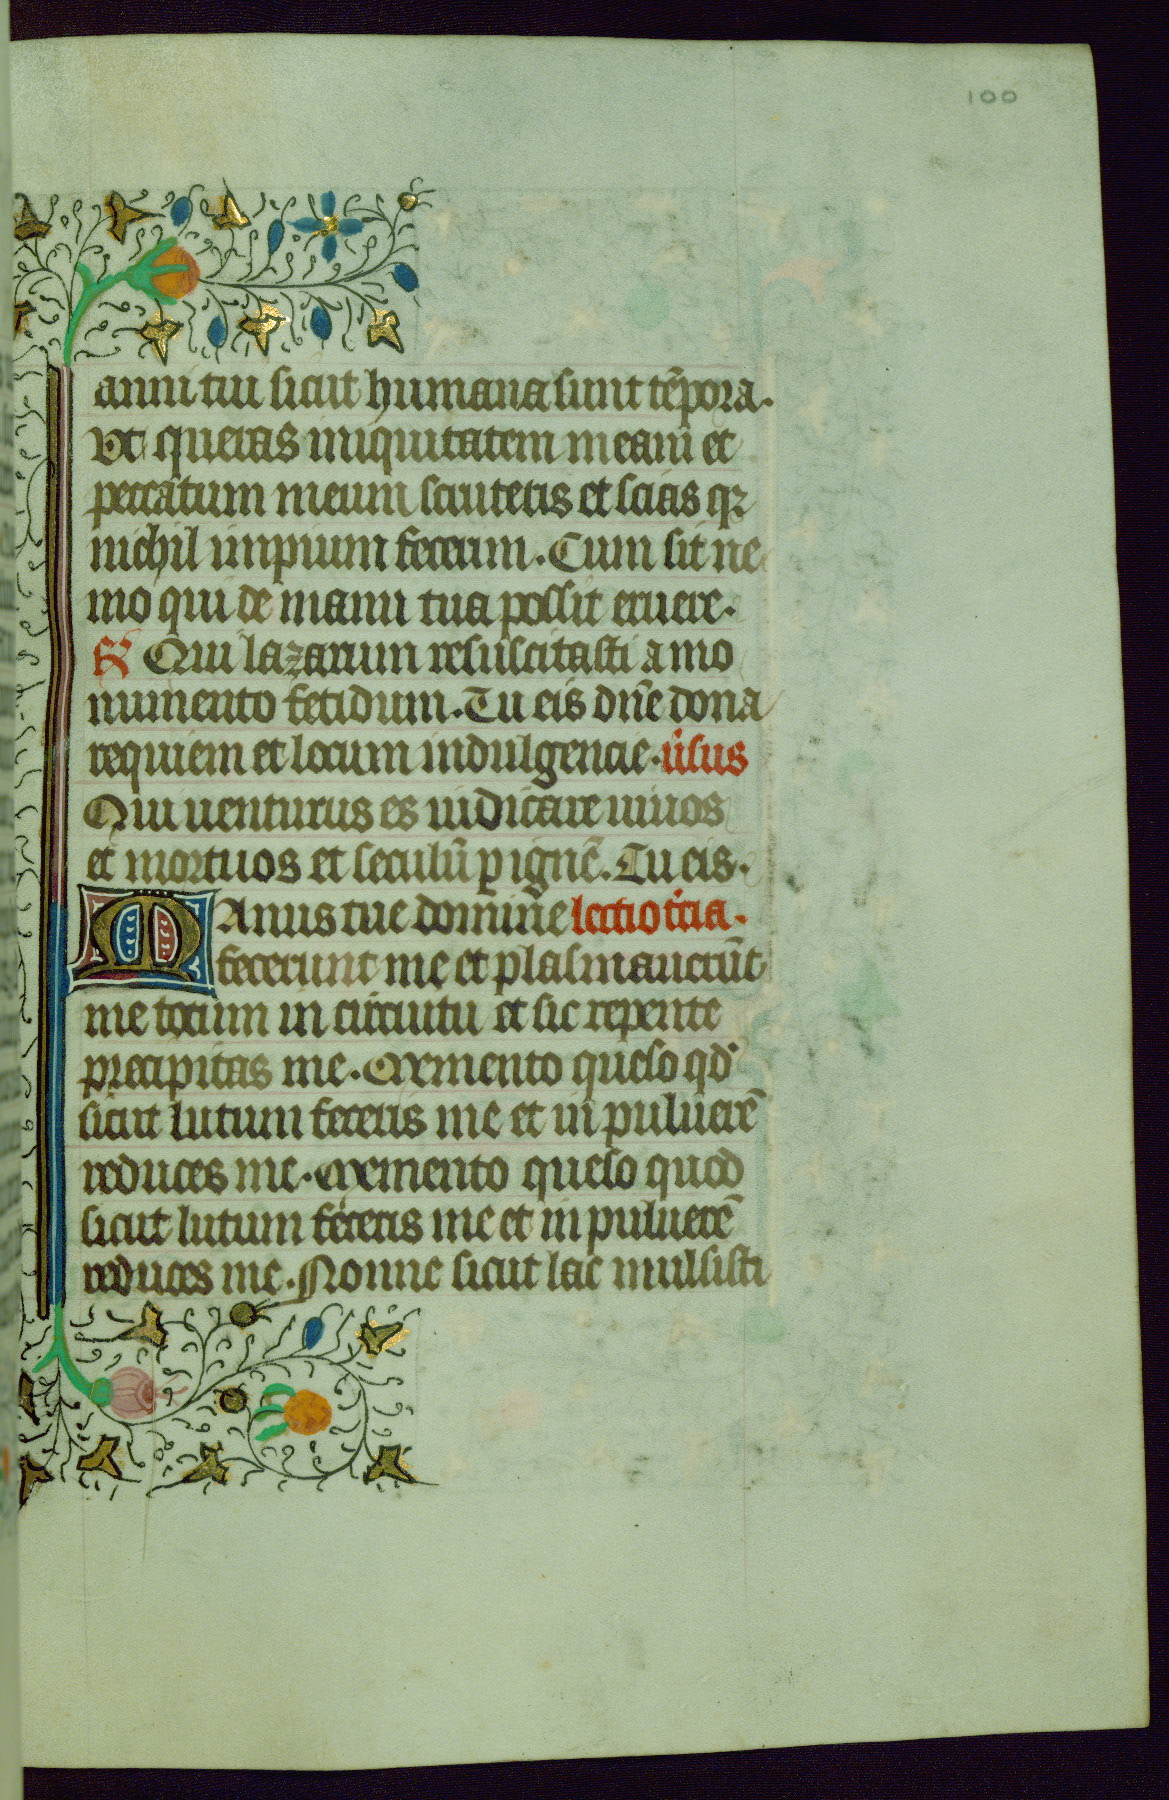 100
anni tui sicut humana sunt tēpora.
Vt queras iniquitatem meam et
peccatum meum scruteris et scias qꝛ
nichil impium fecerim. Cum sit ne
mo qui de manu tua possit eruere.
R̷ Qui lazarum resuscitasti a mo
numento fetidum. Tu eis dn̄e dona
requiem et locum indulgencie. v̄sus
Qui uenturus es iudicare uiuos
et mortuos et seculū ꝑ ignē. Tu eis.
Manus tue domine lectio t̄cia.
fecerunt me et plasmauerūt
me totum in circuitu et sic repente
precipitas me. Memento queso qd̄
sicut lutum feceris me et in puluerē
reduces me. Memento queso quod
sicut lutum feceris me et in puluerē
reduces me. Nonne sicut lac mulsisti